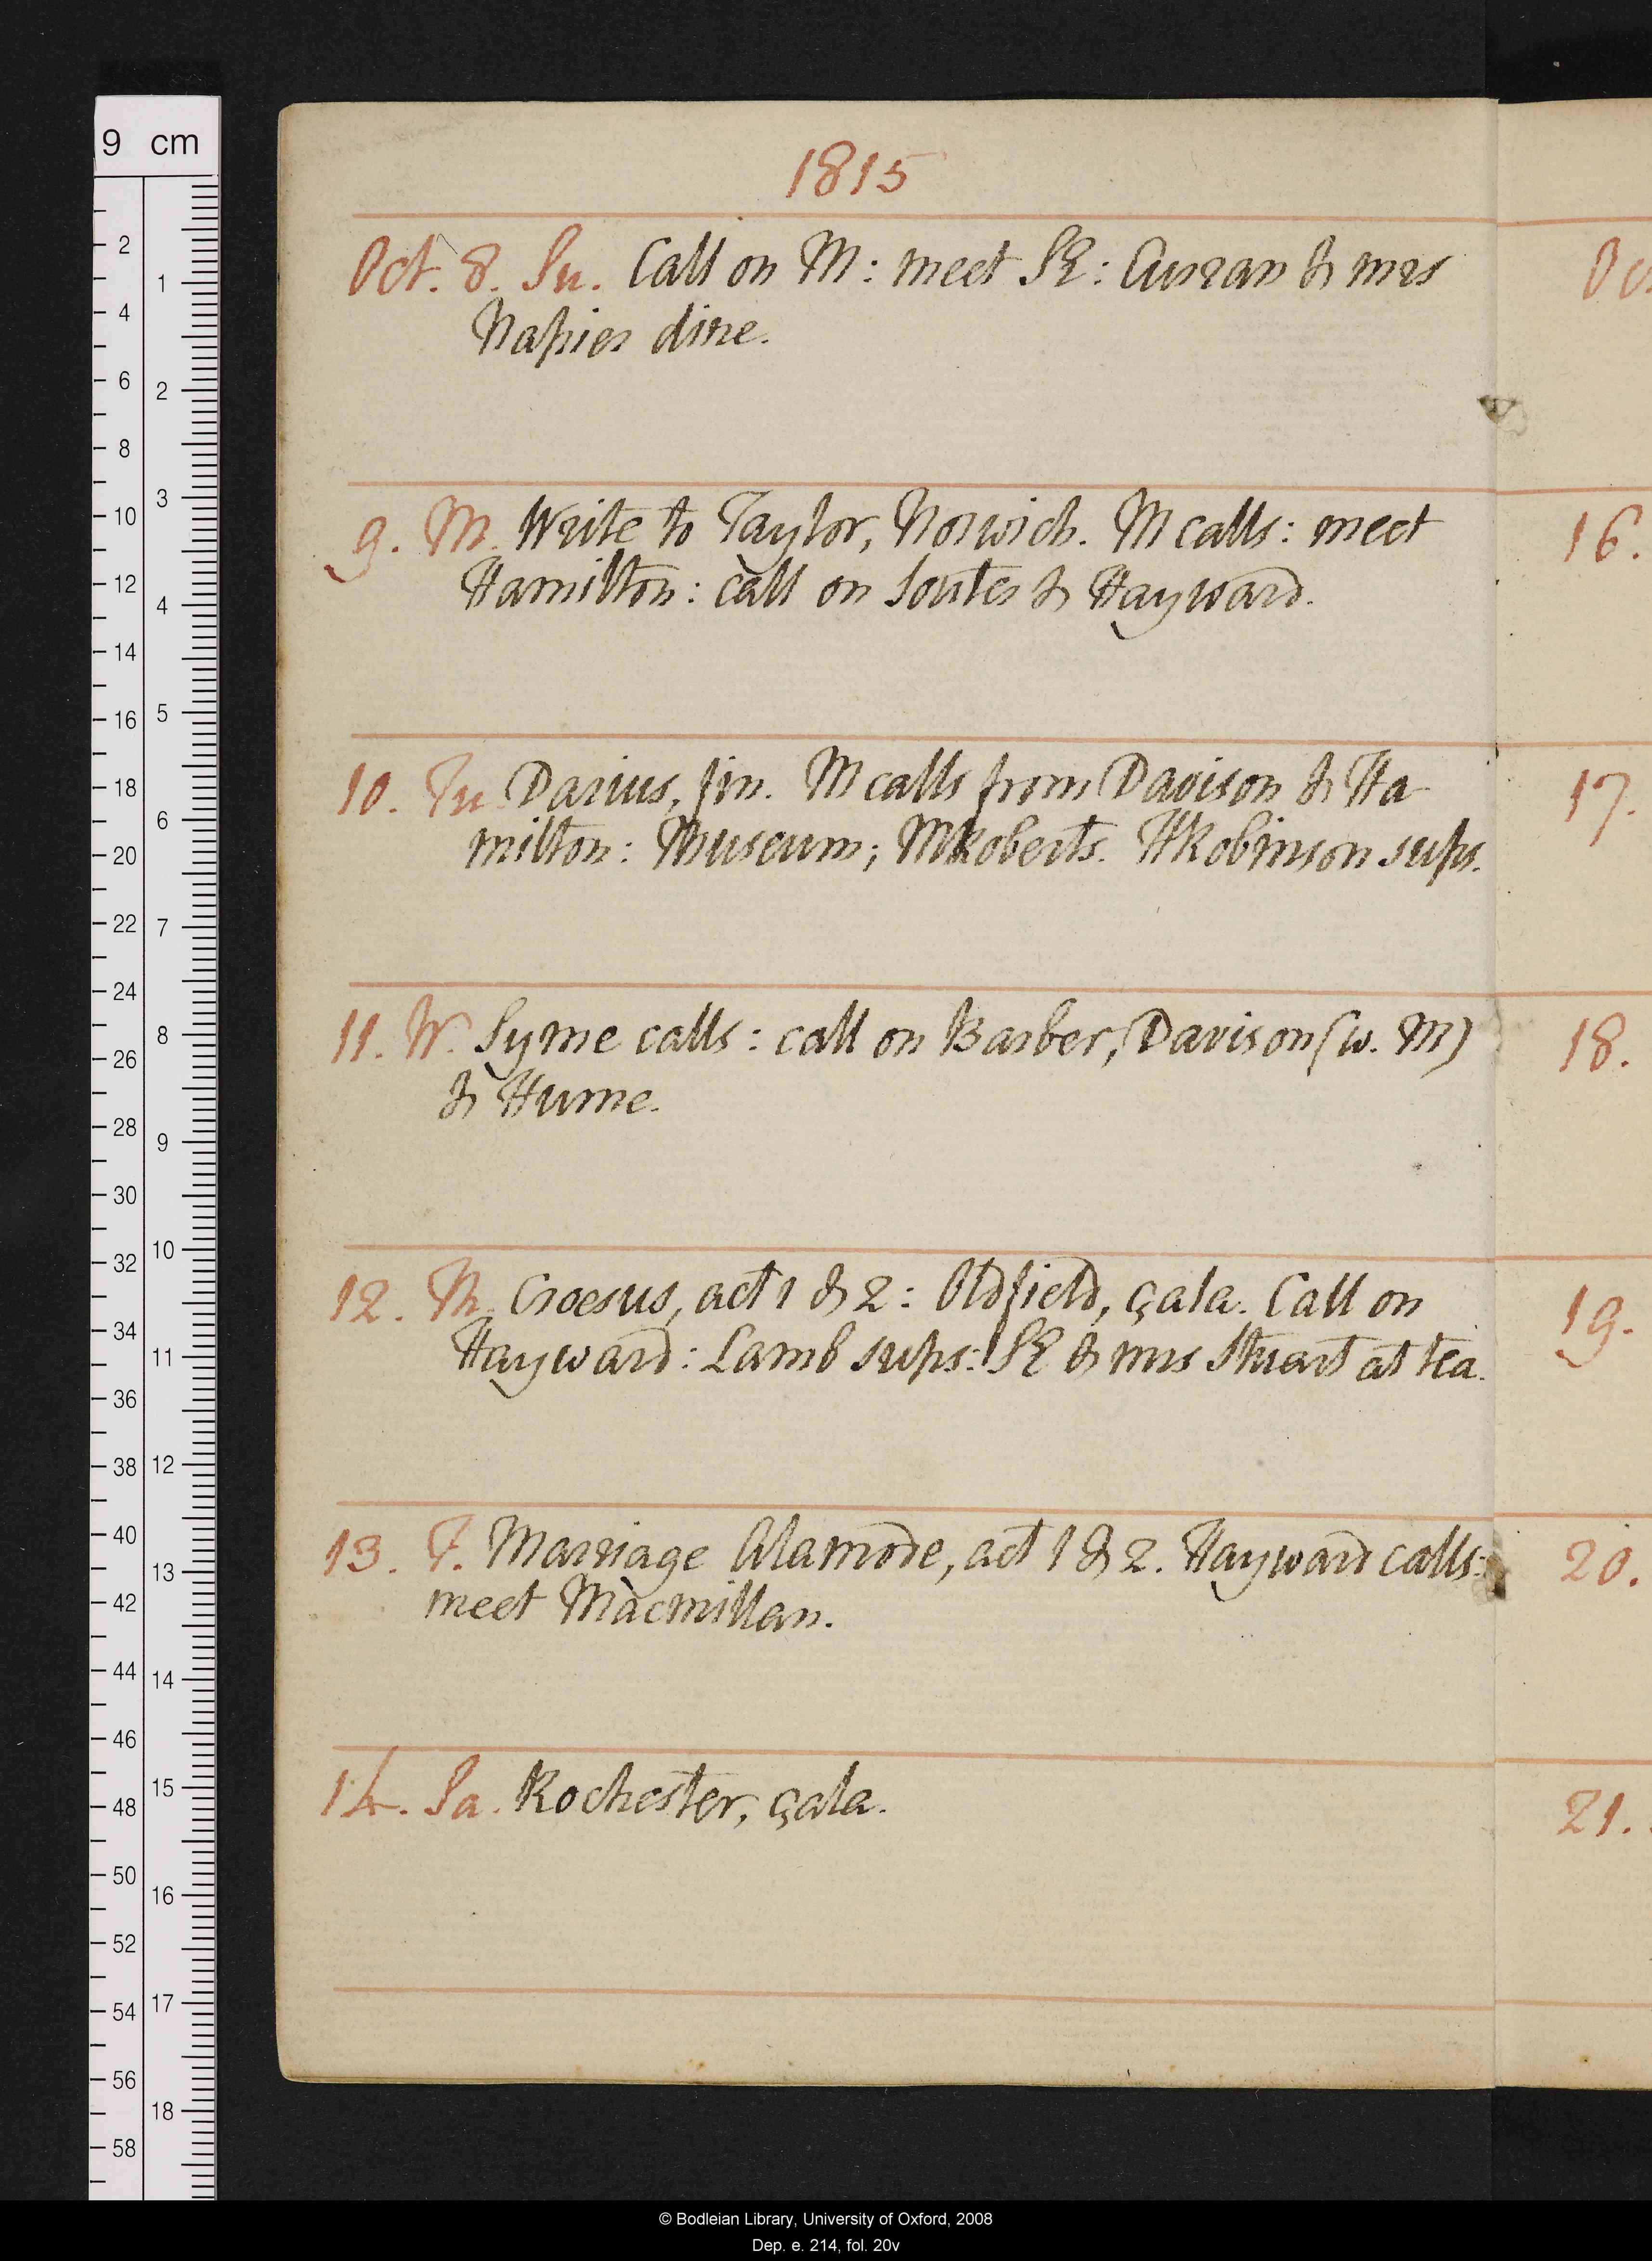 1815
Oct. 8. Su. Call on M: meet SE: Curran & mrs
Napier dine.
9. M. Write to Taylor, Norwich. M calls: meet
Hamilton: call on Souter & Hayward.
10. Tu. Darius, fin. M calls from Davison & Ha-
milton: Museum; MRoberts. HRobinson sups.
11. W. Syme calls: call on Barber, Davison (w. M)
& Hume.
12. Th. Croesus, act 1 & 2: Oldfield, çala. Call on
Hayward: Lamb sups: SE & mrs Stuart at tea.
13. F. Marriage Alamode, act 1 & 2. Hayward calls:
meet Macmillan.
14. Sa. Rochester, çala.
Oc
16.
17.
18.
19.
20.
21.
9 cm
2
4
6
8
10
12
14
16
18
20
22
24
26
28
30
32
34
36
38
40
42
44
46
48
50
52
54
56
58
1
2
3
4
5
6
7
8
9
10
11
12
13
14
15
16
17
18
© Bodleian Library, University of Oxford, 2008
Dep. e. 214, fol. 20v